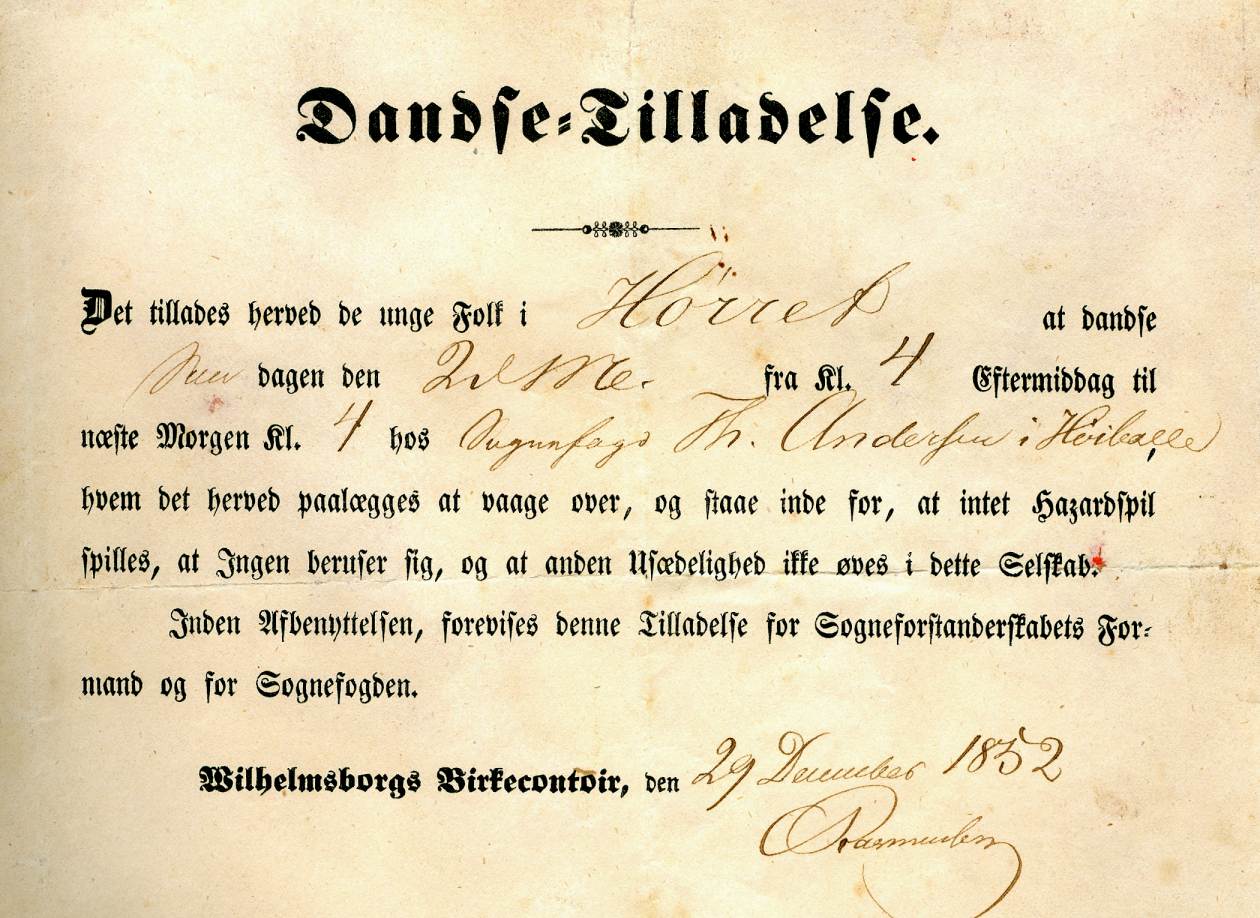 Dandse-Tilladelse.
Det tillades herved de unge Folk i Hörret at dandse
Sun dagen den 2d M. fra Kl. 4 Eftermiddag til
næste Morgen Kl. 4 hos Sognefogd Th. Andersen i Höiballe
hvem det herved paalægges at vaage over, og staae inde for, at intet Hazardspil
spilles, at Ingen beruser sig, og at anden Usædelighed ikke øves i dette Selskab.
Inden Afbenyttelsen, forevises denne Tilladelse for Sogneforstanderskabets For-
mand og for Sognefogden.
Wilhelmsborgs Birkecontoir, den 29 December 1852
Rasmussen